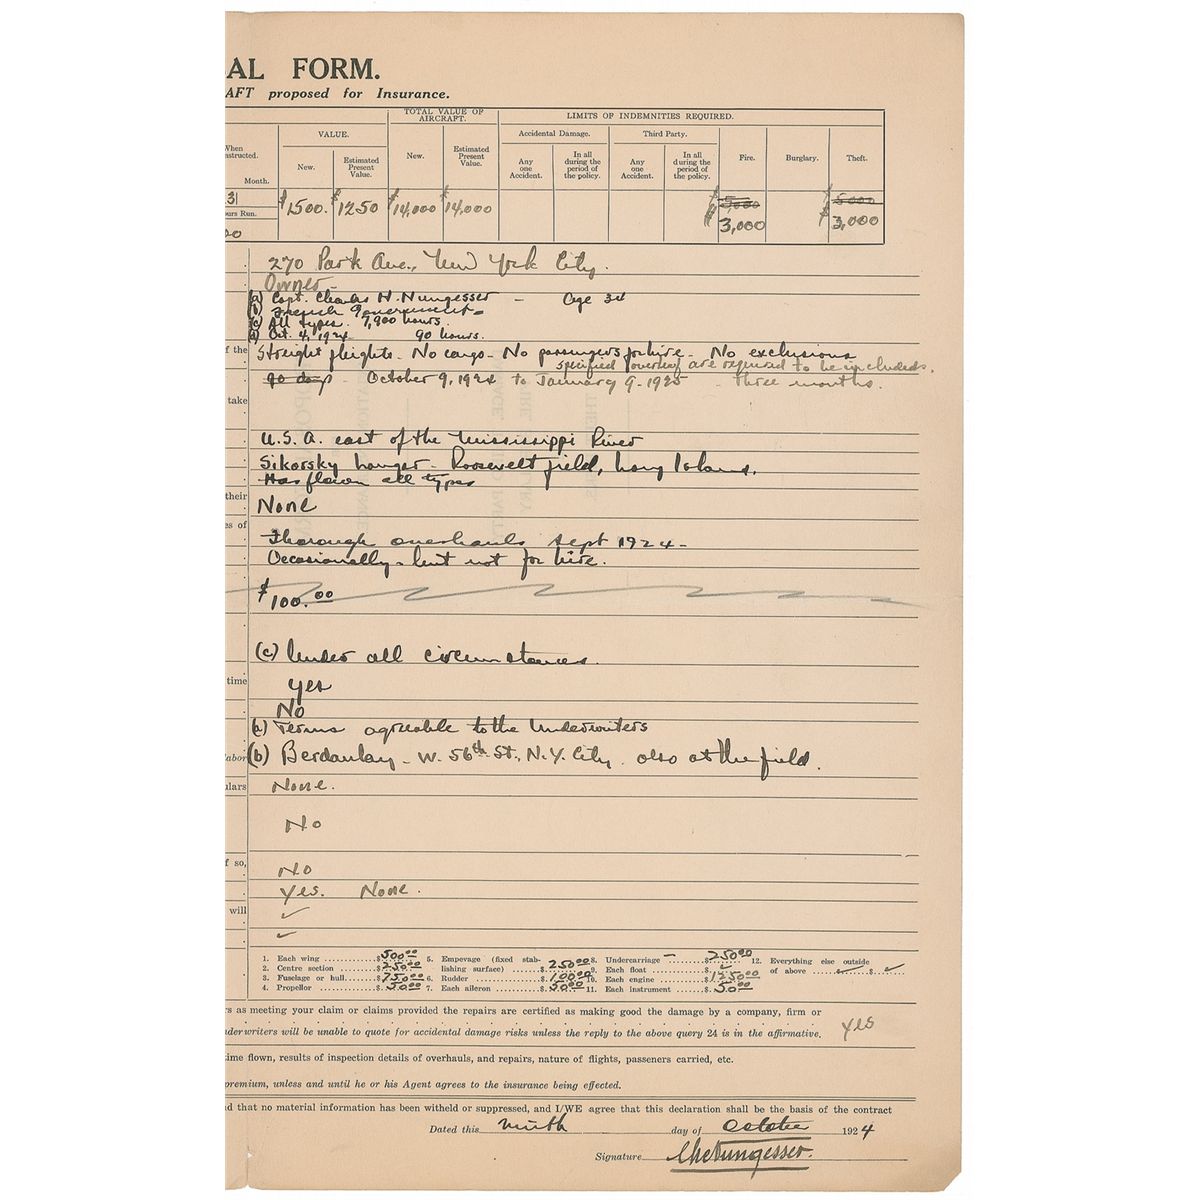 AL FORM.
AFT proposed for Insurance.
TOTAL VALUE OF AIRCRAFT.
LIMITS OF INDEMNITIES REQUIRED.
VALUE.
Accidental Damage.
Third Party.
When
nstructed.
New.
Estimated Present Value.
New.
Estimated Present Value.
Any one Accident.
In all during the period of the policy.
Any one Accident.
In all during the period of the policy.
Fire.
Burglary.
Theft.
Month.
31
$1500.
$1250
$14,000
$14,000
$5,000
$5000
ours Run.
$3,000
$3,000
00
270 Park Ave., New York City.
Owner
(a) Capt. Charles H. Nungesser - Age 34
(b) French Government
(c) All types. 7,900 hours.
(d) Oct. 4, 1924 90 hours.
f the
Straight flights - No cargo - No passengers for hire - No exclusions
specified are required to be included.
90 days October 9, 1924 to January 9, 1925 - three months.
take
U.S.A. east of the Mississippi River
Sikorsky hanger - Roosevelt field, Long Island.
Has flown all types
their
None
es of
Thorough overhauls Sept 1924 -
Occasionally - but not for hire.
$100.00
(c) Under all circumstances.
time
yes
No
(a) Terms agreable to the Underwriters
labor
(b) Berdanlay - W. 56th St., N.Y. City. also at the field.
ulars
None.
No
f so,
No
Yes. None.
will
1. Each wing $500.00 5. Empevage (fixed stab- 8. Undercarriage $250.00 12. Everything else outside
2. Centre section $250.00 lishing surface) $250.00 9. Each float $ of above $
3. Fuselage or hull $750.00 6. Rudder $100.00 10. Each engine $1250.00
4. Propellor $50.00 7. Each aileron $50.00 11. Each instrument $50.00
rs as meeting your claim or claims provided the repairs are certified as making good the damage by a company, firm or
nderwriters will be unable to quote for accidental damage risks unless the reply to the above query 24 is in the affirmative. yes
time flown, results of inspection details of overhauls, and repairs, nature of flights, passeners carried, etc.
premium, unless and until he or his Agent agrees to the insurance being effected.
nd that no material information has been witheld or suppressed, and I/WE agree that this declaration shall be the basis of the contract
Dated this ninth day of October 1924
Signature Ch Nungesser